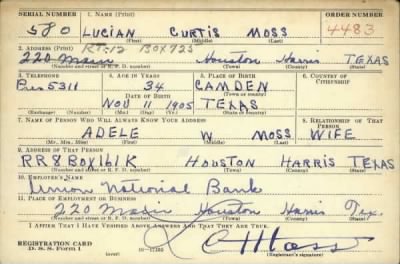 SERIAL NUMBER 1. NAME (Print) ORDER NUMBER
580 LUCIAN CURTIS MOSS 4483
(First) (Middle) (Last)
2. ADDRESS (Print) RT. 12 BOX 725
220 Main Houston Harris TEXAS
(Number and street or R. F. D. number) (Town) (County) (State)
3. TELEPHONE 4. AGE IN YEARS 5. PLACE OF BIRTH 6. COUNTRY OF CITIZENSHIP
5311 34 CAMDEN
DATE OF BIRTH (Town or county)
NOV 11 1905 TEXAS
(Exchange) (Number) (Mo.) (Day) (Yr.) (State or country)
7. NAME OF PERSON WHO WILL ALWAYS KNOW YOUR ADDRESS 8. RELATIONSHIP OF THAT PERSON
ADELE W MOSS WIFE
(Mr., Mrs., Miss) (First) (Middle) (Last)
9. ADDRESS OF THAT PERSON
RR 8 BOX 161K HOUSTON HARRIS TEXAS
(Number and street or R. F. D. number) (Town) (County) (State)
10. EMPLOYER'S NAME
Union National Bank
11. PLACE OF EMPLOYMENT OR BUSINESS
220 Main Houston Harris Tex.
(Number and street or R. F. D. number) (Town) (County) (State)
I AFFIRM THAT I HAVE VERIFIED ABOVE ANSWERS AND THAT THEY ARE TRUE.
REGISTRATION CARD
D. S. S. Form 1 (over) L C Moss
(Registrant's signature)